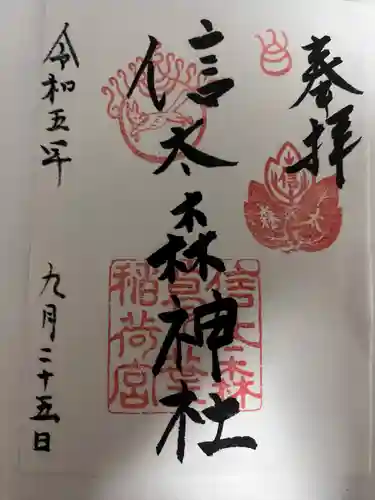 奉拝
信太森神社
令和五年
九月二十五日
信太森
葛葉
稲荷宮